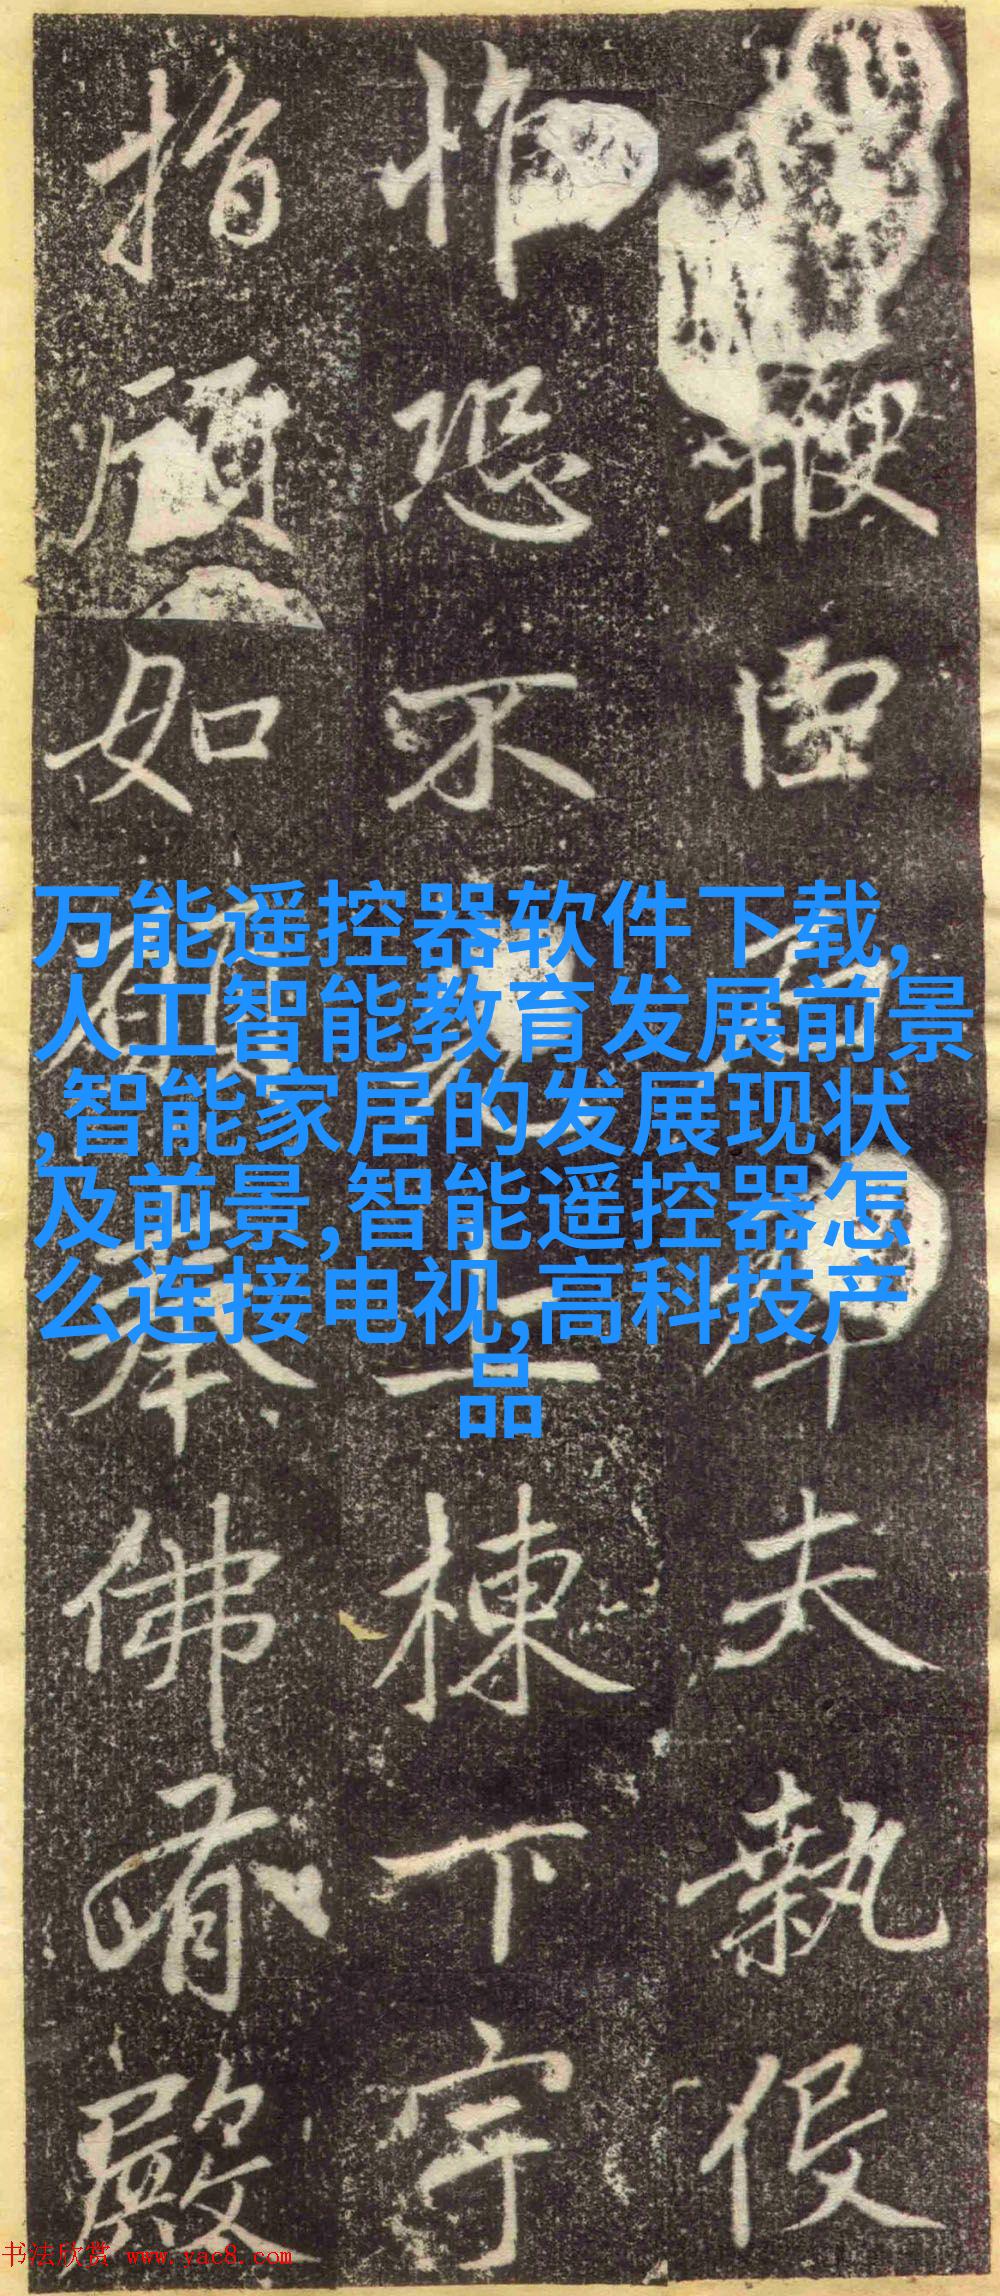 鞭 夫執役
怍恐不 上棟下宇
指顧如願奉佛 殿
万能遥控器软件下载,
人工智能教育发展前景
,智能家居的发展现状
及前景,智能遥控器怎
么连接电视,高科技产
品
书法欣赏 www.yac8.com